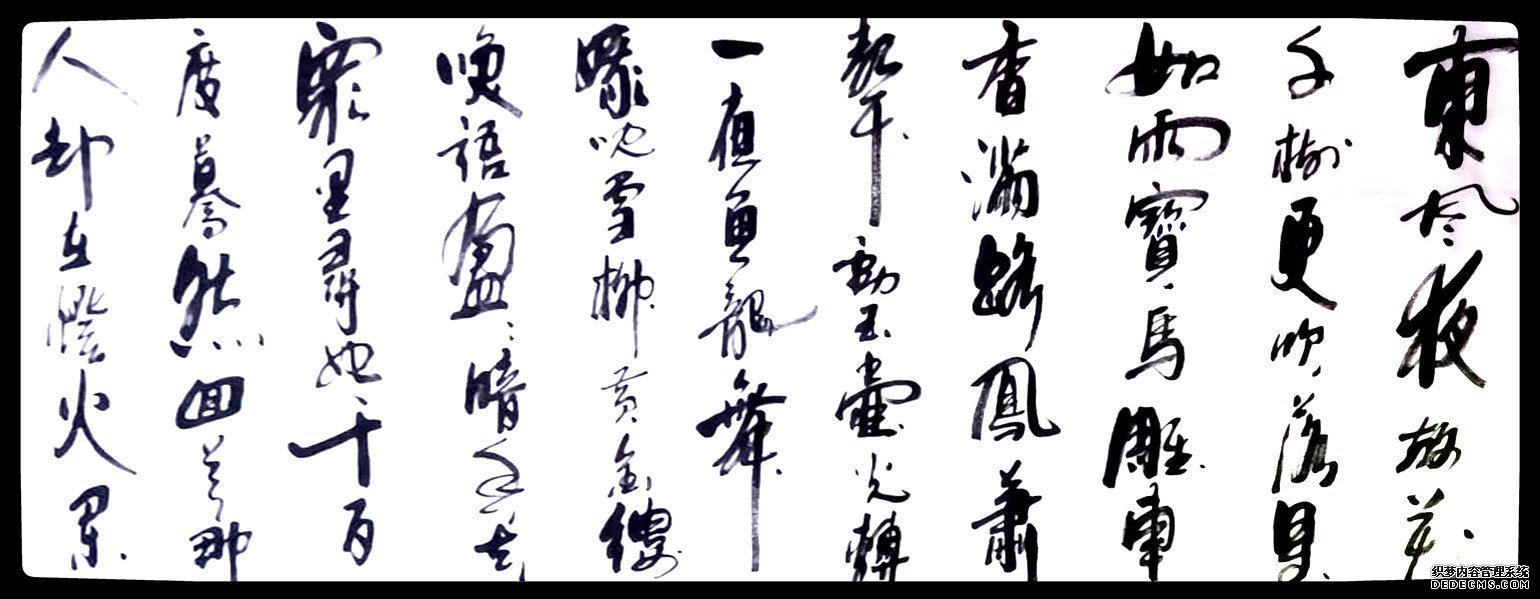 東风夜放花
千樹更吹落星
如雨寶馬雕車
香滿路鳳蕭
聲動玉壺光轉
一亱魚龍舞
蛾兒雪柳黃金縷
咲語盈盈暗香去
眾里尋她千百
度驀然回首那
人却在燈火闌
织梦内容管理系统
DEDECMS.COM